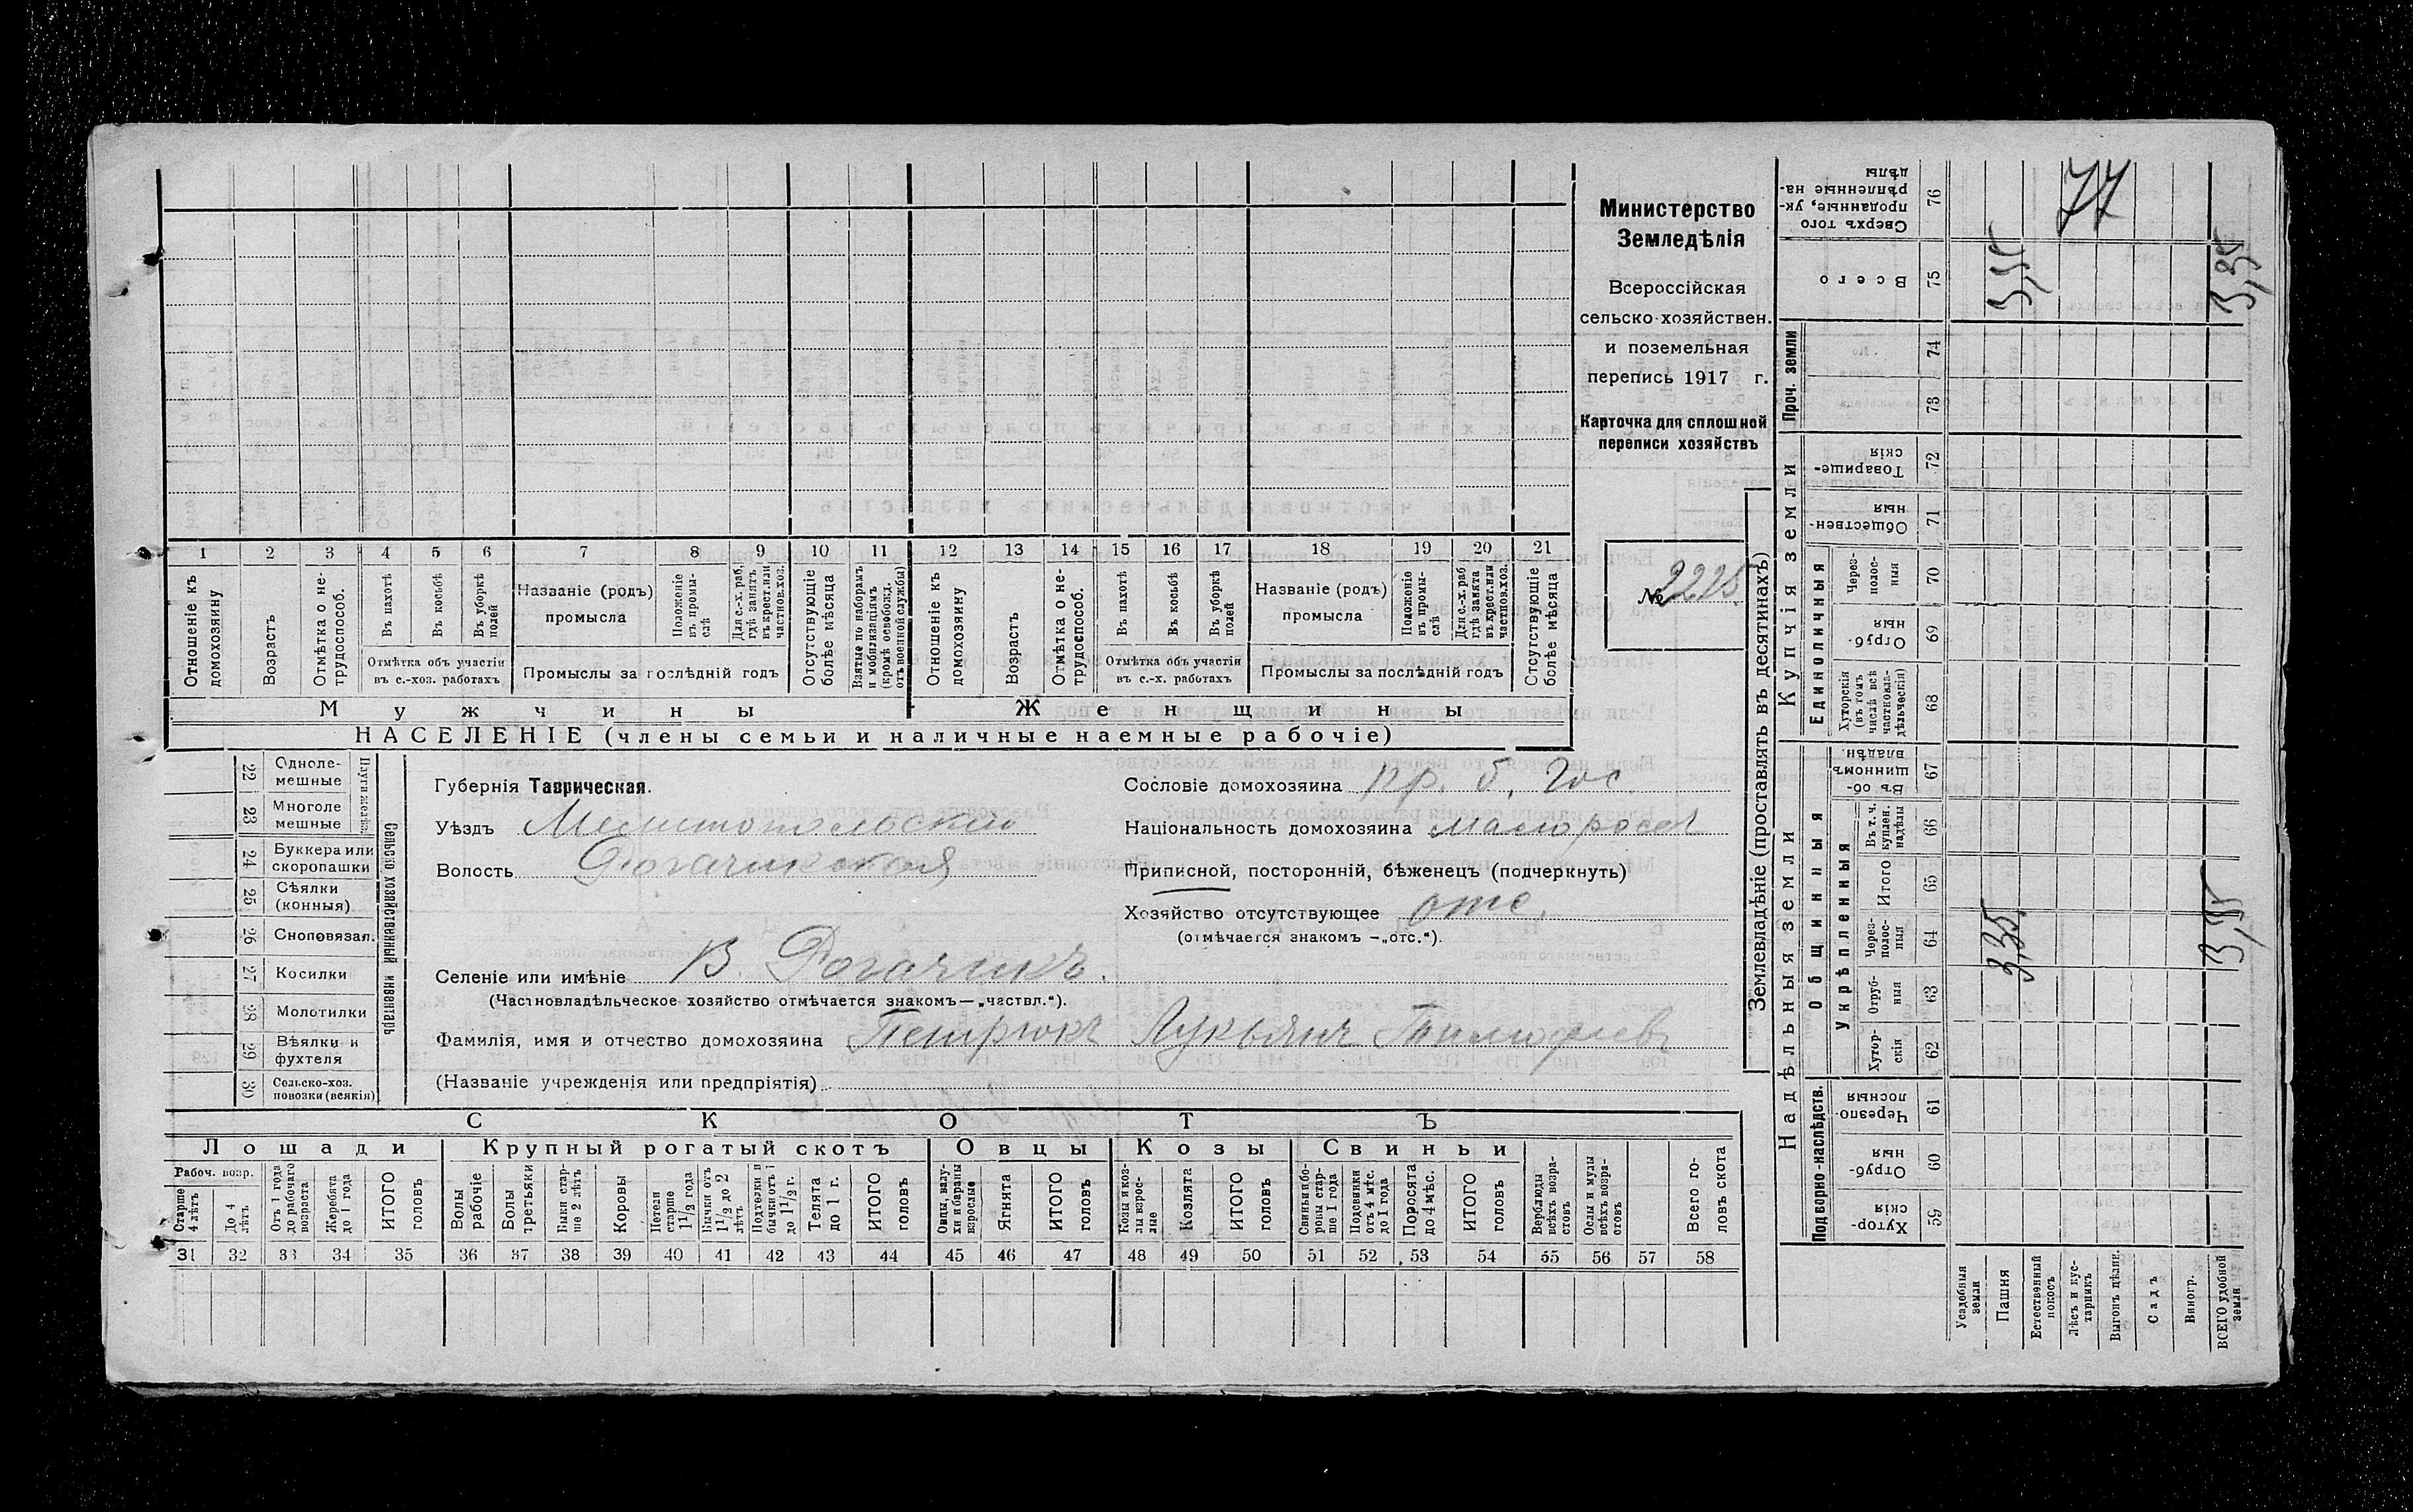 Министерство
Земледѣлія
Всероссійская
сельско-хозяйствен.
и поземельная
перепись 1917 г.
Карточка для сплошной
переписи хозяйствъ
№ 2225
1 2 3 4 5 6 7 8 9 10 11 12 13 14 15 16 17 18 19 20 21
Отношеніе къ домохозяину
Возрастъ
Отмѣтка о не-трудоспособ.
Въ пахотѣ
Въ косьбѣ
Въ уборкѣ полей
Отмѣтка объ участіи въ с.-хоз. работахъ
Названіе (родъ) промысла
Положеніе въ промы-слѣ
Для с.-х. раб, гдѣ занятъ въ крест. или частнов. хоз.
Промыслы за послѣдній годъ
Отсутствующіе болѣе мѣсяца
Взятые по наборамъ и мобилизаціямъ (кромѣ освобожд. отъ военной службы)
Отношеніе къ домохозяину
Возрастъ
Отмѣтка о не-трудоспособ.
Въ пахотѣ
Въ косьбѣ
Въ уборкѣ полей
Отмѣтка объ участіи въ с.-х. работахъ
Названіе (родъ) промысла
Положеніе въ промы-слѣ
Для с.-х. раб гдѣ занята въ крест. или частнов. хоз.
Промыслы за послѣдній годъ
Отсутствующіе болѣе мѣсяца
Мужчины Женщины
НАСЕЛЕНІЕ (члены семьи и наличные наемные рабочіе)
22 Одноле-мешные
23 Многоле мешные
Плуги желѣз.
24 Буккера или скоропашки
25 Сѣялки (конныя)
26 Сноповязал.
27 Косилки
28 Молотилки
29 Вѣялки и фухтеля
30 Сельско-хоз. повозки (всякія)
Сельско хозяйственный инвентарь
Губернія Таврическая.
Уѣздъ Мелитопольскій
Волость Рогачикская
Селеніе или имѣніе В. Рогачикъ.
(Частновладѣльческое хозяйство отмѣчается знакомъ—„частвл.“).
Фамилія, имя и отчество домохозяина Петрюкъ Лукьянъ Тимофеевъ
(Названіе учрежденія или предпріятія)
Сословіе домохозяина кр. б. гос
Національность домохозяина малоросс
Приписной, посторонній, бѣженецъ (подчеркнуть)
Хозяйство отсутствующее отс.
(отмѣчается знакомъ —„отс.“).
СКОТЪ
Лошади Крупный рогатый скотъ Овцы Козы Свиньи
Рабоч. возр.
Старше 4 лѣтъ
До 4 лѣтъ
Отъ 1 года до рабочаго возраста
Жеребята до 1 года
ИТОГО головъ
Волы рабочіе
Волы третьяки
Быки стар-ше 2 лѣтъ
Коровы
Нетели старше 1 1/2 года
Бычки отъ 1 1/2 до 2 лѣтъ
Подтелки и бычки отъ 1 до 1 1/2 г.
Телята до 1 г.
ИТОГО головъ
Овцы, валу-хи и бараны взрослые
Ягнята
ИТОГО головъ
Козы и коз-лы взрос-лые
Козлята
ИТОГО головъ
Свиньи и бо-ровы стар-ше 1 года
Подсвинки отъ 4 мѣс. до 1 года
Поросята до 4 мѣс.
ИТОГО головъ
Верблюды всѣхъ возра-стовъ
Ослы и мулы всѣхъ возра-стовъ
Всего го-ловъ скота
31 32 33 34 35 36 37 38 39 40 41 42 43 44 45 46 47 48 49 50 51 52 53 54 55 56 57 58
Землевладѣніе (проставлять въ десятинахъ)
Купчія земли
Надѣльныя земли
Проч. земли
Единоличныя
Общинныя
Укрѣпленныя
Подворно-наслѣдств.
76 Сверхъ того проданные, ук-рѣпленные на-дѣлы
77
75 Всего 3,35 3,35
74
73
72 Товарище-скія
71 Обществен-ныя
70 Через-полос-ныя
69 Отруб-ныя
68 Хуторскія (въ томъ числѣ всѣ частновла-дѣльческія)
67 Въ об-щинномъ владѣн.
66 Въ т. ч. куплен. надѣлы
65 Итого
64 Через-полос-ныя 3,35 3,35
63 Отруб-ныя
62 Хутор-скія
61 Черезпо-лосныя
60 Отруб-ныя
59 Хутор-скія
Усадебныя земли
Пашня
Естественный покосъ
Лѣсъ и кус-тарникъ
Выгонъ цѣлин.
Садъ
Виногр.
ВСЕГО удобной земли